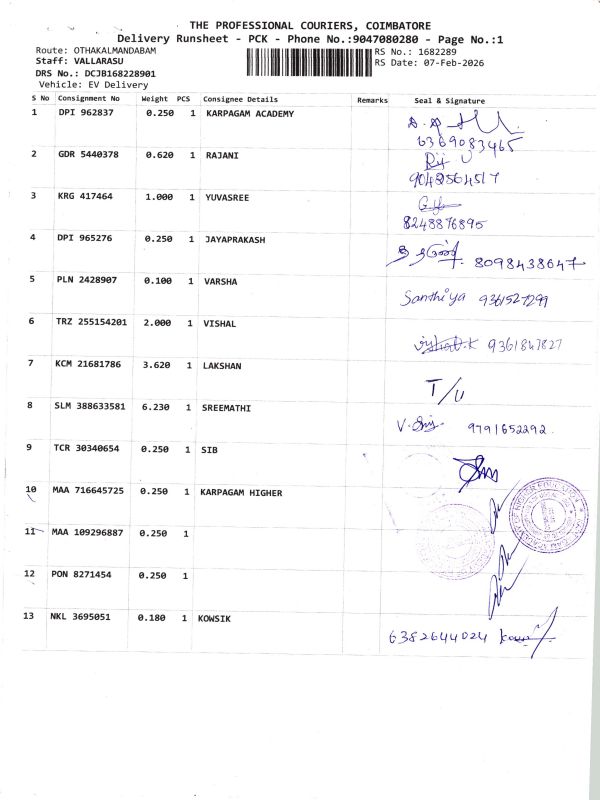 THE PROFESSIONAL COURIERS, COIMBATORE
Delivery Runsheet - PCK - Phone No.:9047080280 - Page No.:1
Route: OTHAKALMANDABAM RS No.: 1682289
Staff: VALLARASU RS Date: 07-Feb-2026
DRS No.: DCJB168228901
Vehicle: EV Delivery
S No Consignment No Weight PCS Consignee Details Remarks Seal & Signature
1 DPI 962837 0.250 1 KARPAGAM ACADEMY
6369083465
2 GDR 5440378 0.620 1 RAJANI
9042564517
3 KRG 417464 1.000 1 YUVASREE
8248876895
4 DPI 965276 0.250 1 JAYAPRAKASH
8098438647
5 PLN 2428907 0.100 1 VARSHA
Santhiya 9361527299
6 TRZ 255154201 2.000 1 VISHAL
9361847827
7 KCM 21681786 3.620 1 LAKSHAN
T/U
8 SLM 388633581 6.230 1 SREEMATHI
9791652292
9 TCR 30340654 0.250 1 SIB
10 MAA 716645725 0.250 1 KARPAGAM HIGHER
11 MAA 109296887 0.250 1
12 PON 8271454 0.250 1
13 NKL 3695051 0.180 1 KOWSIK
6382644024